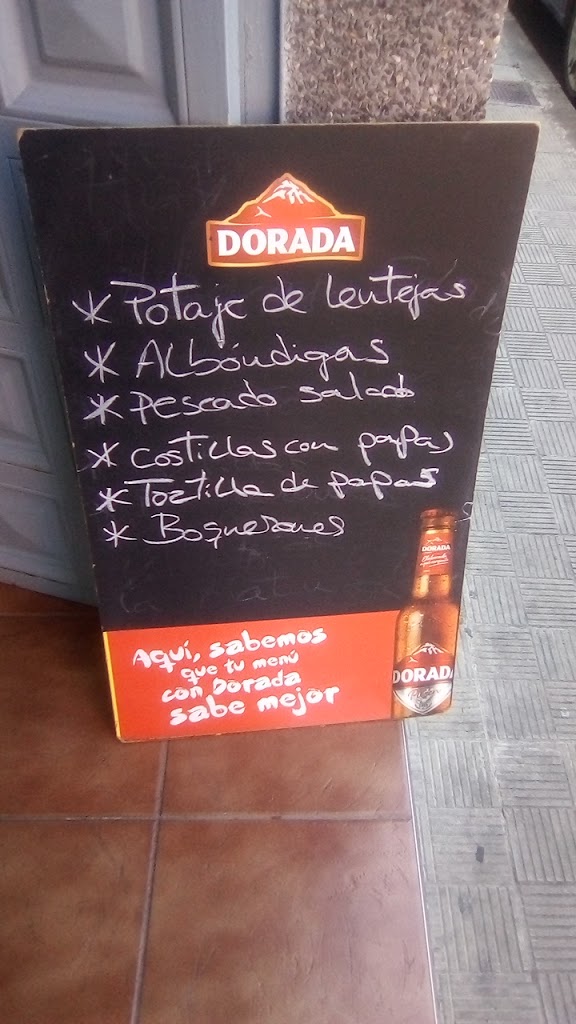 DORADA
* Potaje de lentejas
* Albóndigas
* Pescado salado
* costillas con papas
* Tortilla de papas
* Boquerones
DORADA
DORADA
Aquí, sabemos
que tu menú
con Dorada
sabe mejor